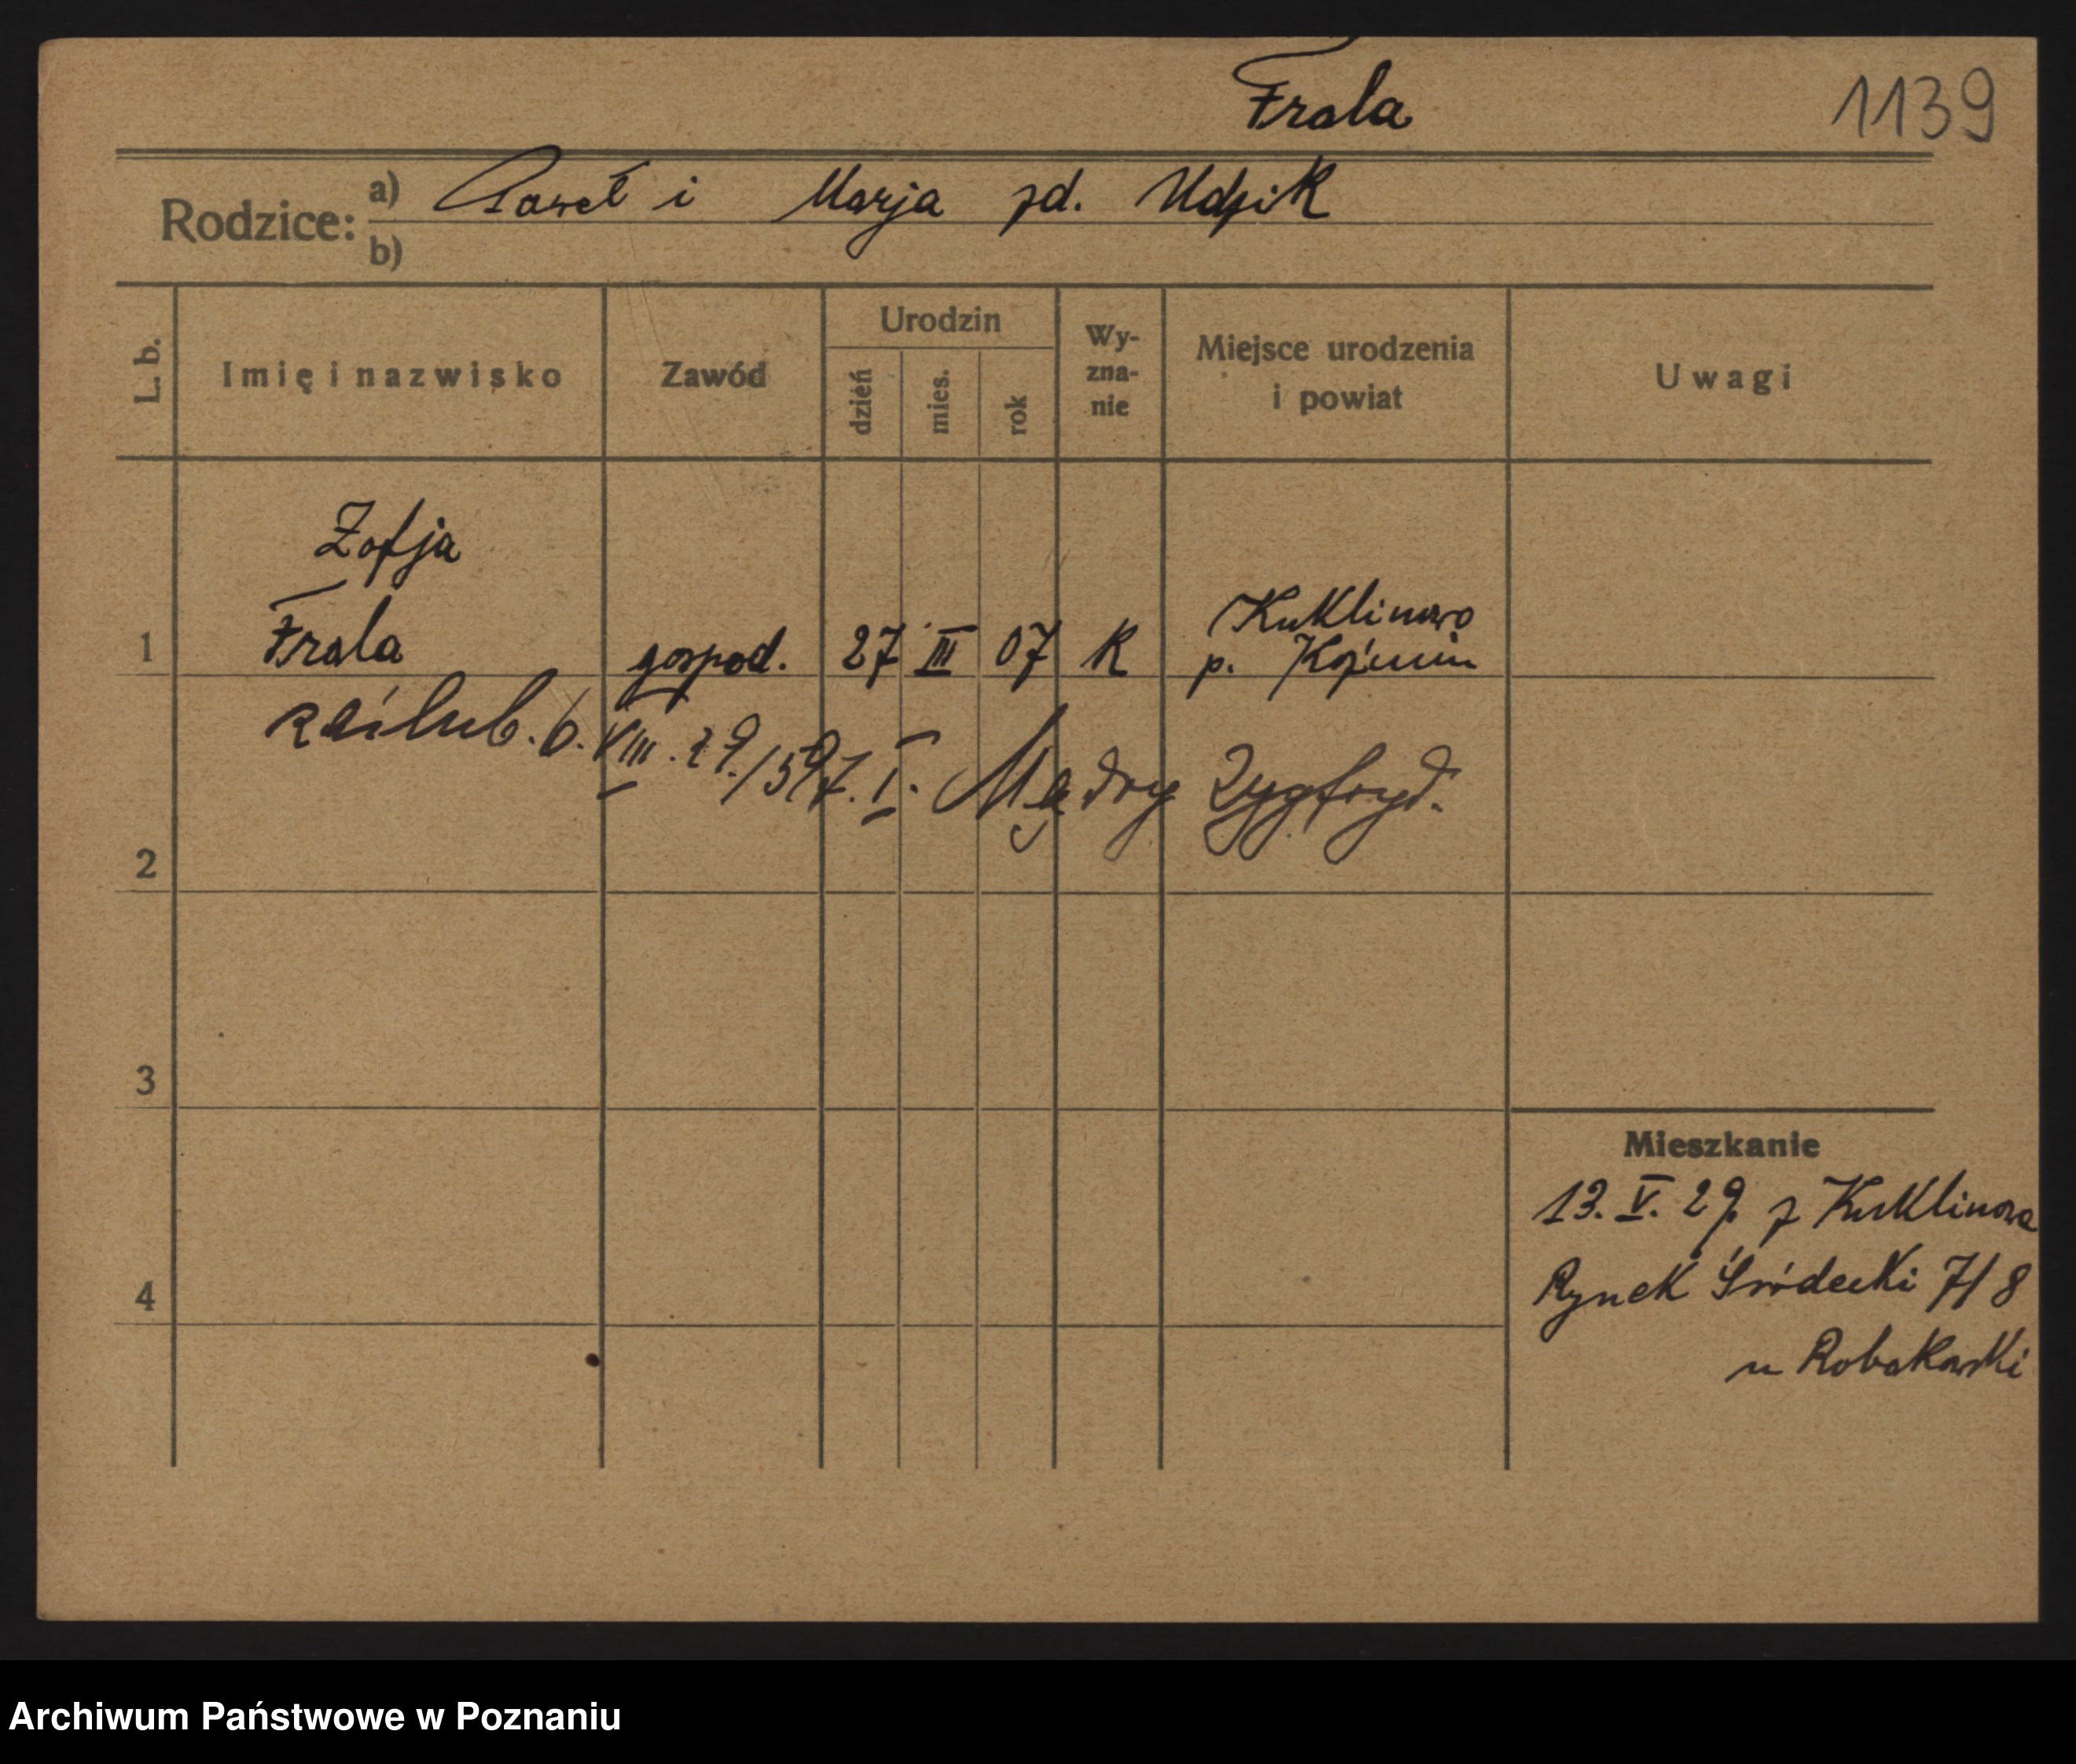 Frala
1139
Rodzice: a) Paweł i Marja zd. Udzik
b)
L. b.
Imię i nazwisko
Zawód
Urodzin
dzień
mies.
rok
Wy-
zna-
nie
Miejsce urodzenia
i powiat
Uwagi
Zofja
1 Frala gospod. 27 III 07 K Kuklinowo
p. Koźmin
zaślub. 6. VIII. 29./597. I. Mądry Zygfryd.
2
3
4
Mieszkanie
13. V. 29 z Kuklinowa
Rynek Śródecki 7/8
u Robakowski
Archiwum Państwowe w Poznaniu